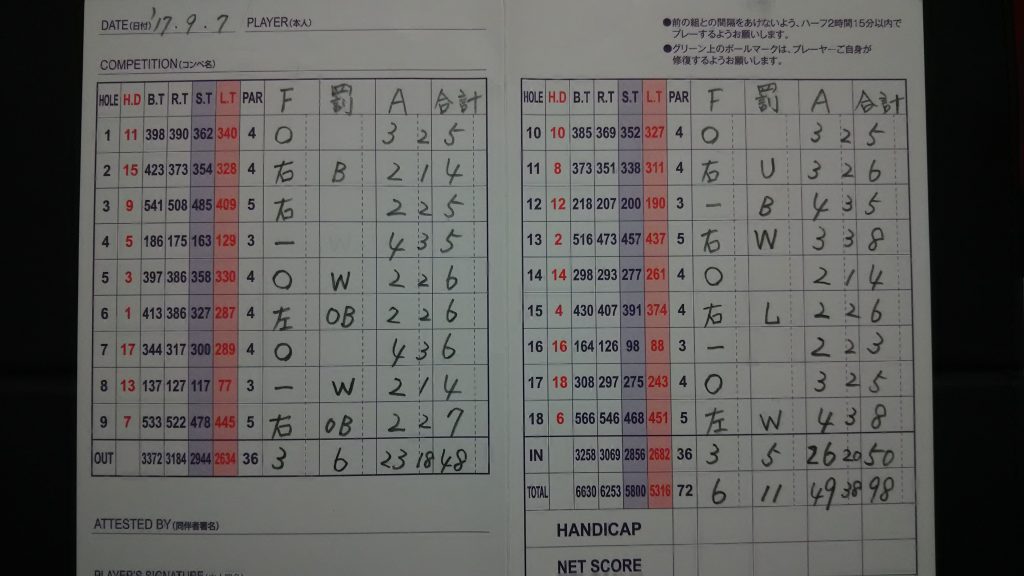 DATE(日付) '17.9.7 PLAYER(本人)
COMPETITION(コンペ名)
HOLE H.D B.T R.T S.T L.T PAR F 罰 A 合計
1 11 398 390 362 340 4 O 3 2 5
2 15 423 373 354 328 4 右 B 2 1 4
3 9 541 508 485 409 5 右 2 2 5
4 5 186 175 163 129 3 ー 4 3 5
5 3 397 386 358 330 4 O W 2 2 6
6 1 413 386 327 287 4 左 OB 2 2 6
7 17 344 317 300 289 4 O 4 3 6
8 13 137 127 117 77 3 ー W 2 1 4
9 7 533 522 478 445 5 右 OB 2 2 7
OUT 3372 3184 2944 2634 36 3 6 23 18 48
ATTESTED BY(同伴者署名)
●前の組との間隔をあけないよう、ハーフ2時間15分以内で
プレーするようお願いします。
●グリーン上のボールマークは、プレーヤーご自身が
修復するようお願いします。
HOLE H.D B.T R.T S.T L.T PAR F 罰 A 合計
10 10 385 369 352 327 4 O 3 2 5
11 8 373 351 338 311 4 右 U 3 2 6
12 12 218 207 200 190 3 ー B 4 3 5
13 2 516 473 457 437 5 右 W 3 3 8
14 14 298 293 277 261 4 O 2 1 4
15 4 430 407 391 374 4 右 L 2 2 6
16 16 164 126 98 88 3 ー 2 2 3
17 18 308 297 275 243 4 O 3 2 5
18 6 566 546 468 451 5 左 W 4 3 8
IN 3258 3069 2856 2682 36 3 5 26 20 50
TOTAL 6630 6253 5800 5316 72 6 11 49 38 98
HANDICAP
NET SCORE